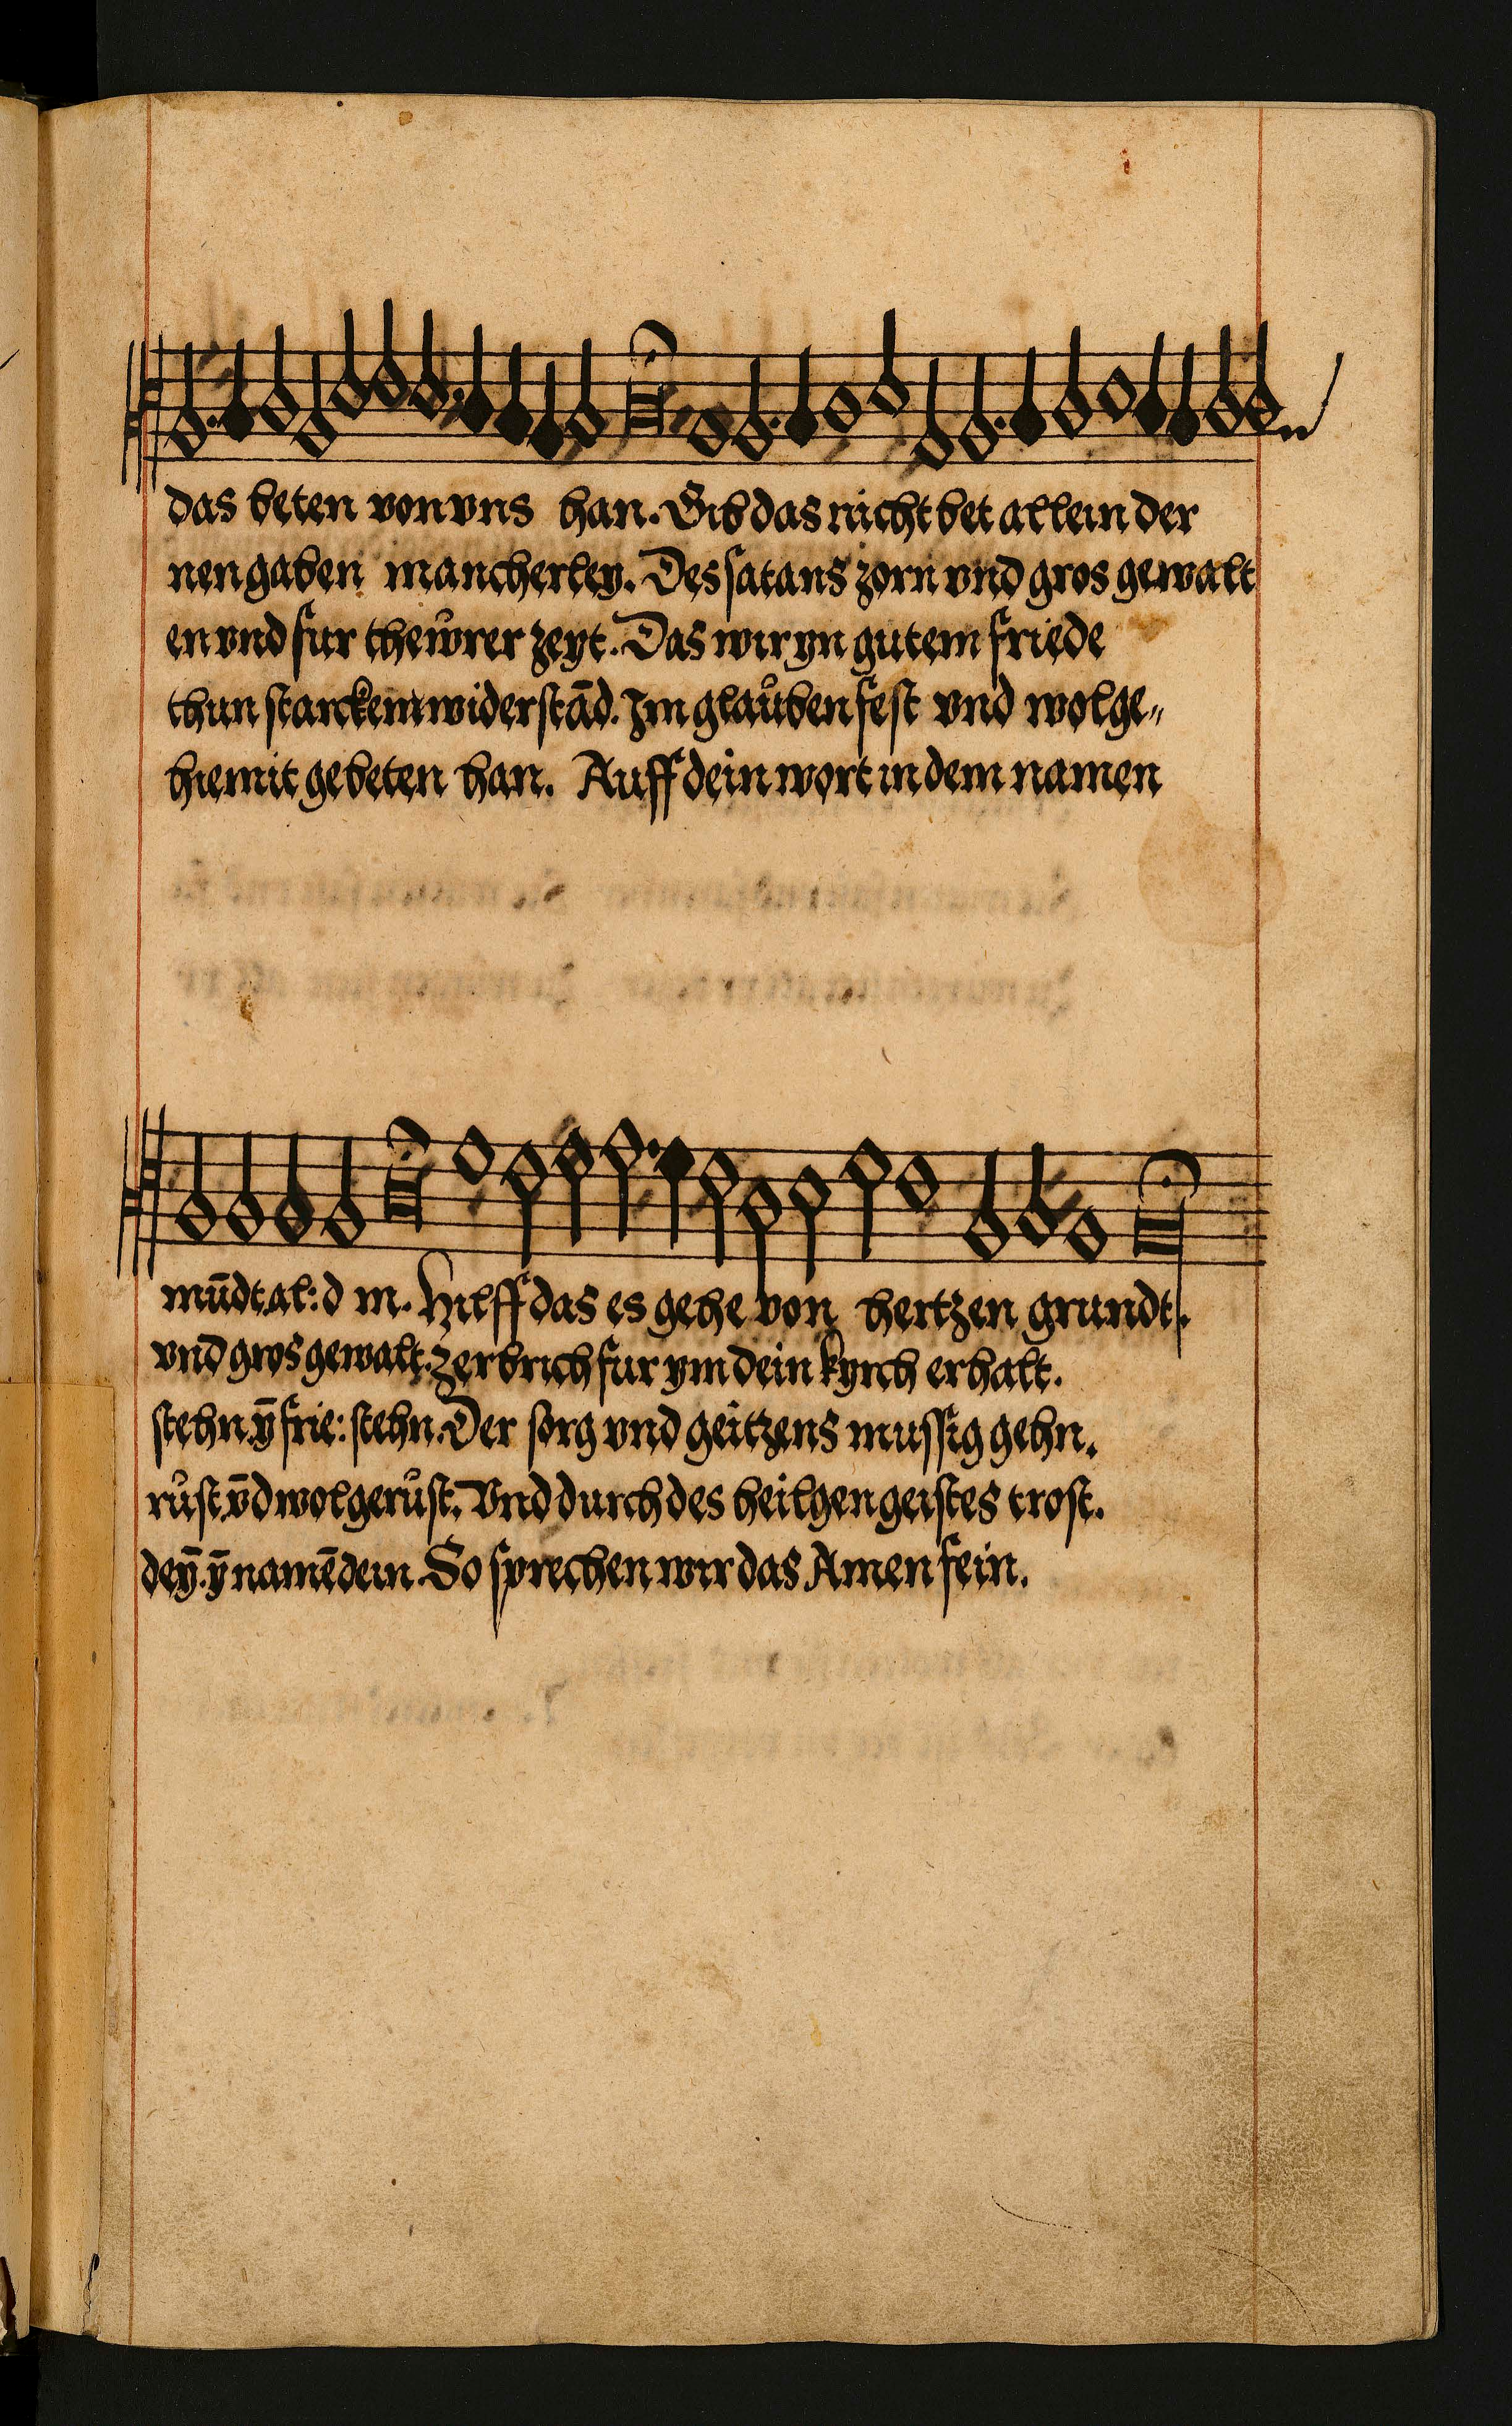 das beten von vns han. Gib das nicht bet allein der
nen gaben mancherley. Des satans zorn vnd gros gewalt
en vnd fur thewrer zeyt. Das wir yn gutem friede
thun starckem widerstād. Im glaůben fest vnd wolge„
hiemit gebeten han. Auff dein wort in dem namen
mūdt, al: d m. Hilff das es gehe von hertzen grundt.
vnd gros gewalt. Zerbrich fur ym dein kyrch erhalt.
stehn. ȳ frie: stehn. Der sorg vnd geitzens mussig gehn.
růst. v̄d wolgerůst. Vnd durch des heilgen geistes trost.
deȳ. ȳ namē dein. So sprechen wir das Amen fein.